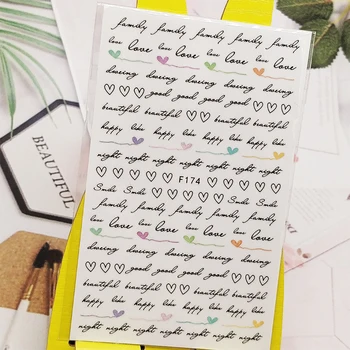 family family family family family
love love love love love love
dancing dancing dancing dancing
good good good good
beautiful beautiful beautiful beautiful
happy like happy like happy like
night night night night night night
F174
Smile Smile Smile Smile
family family family family family
love love love love love love
dancing dancing dancing dancing
good good good good
beautiful beautiful beautiful beautiful
happy like happy like happy like
night night night night night night
BEAUTIFUL